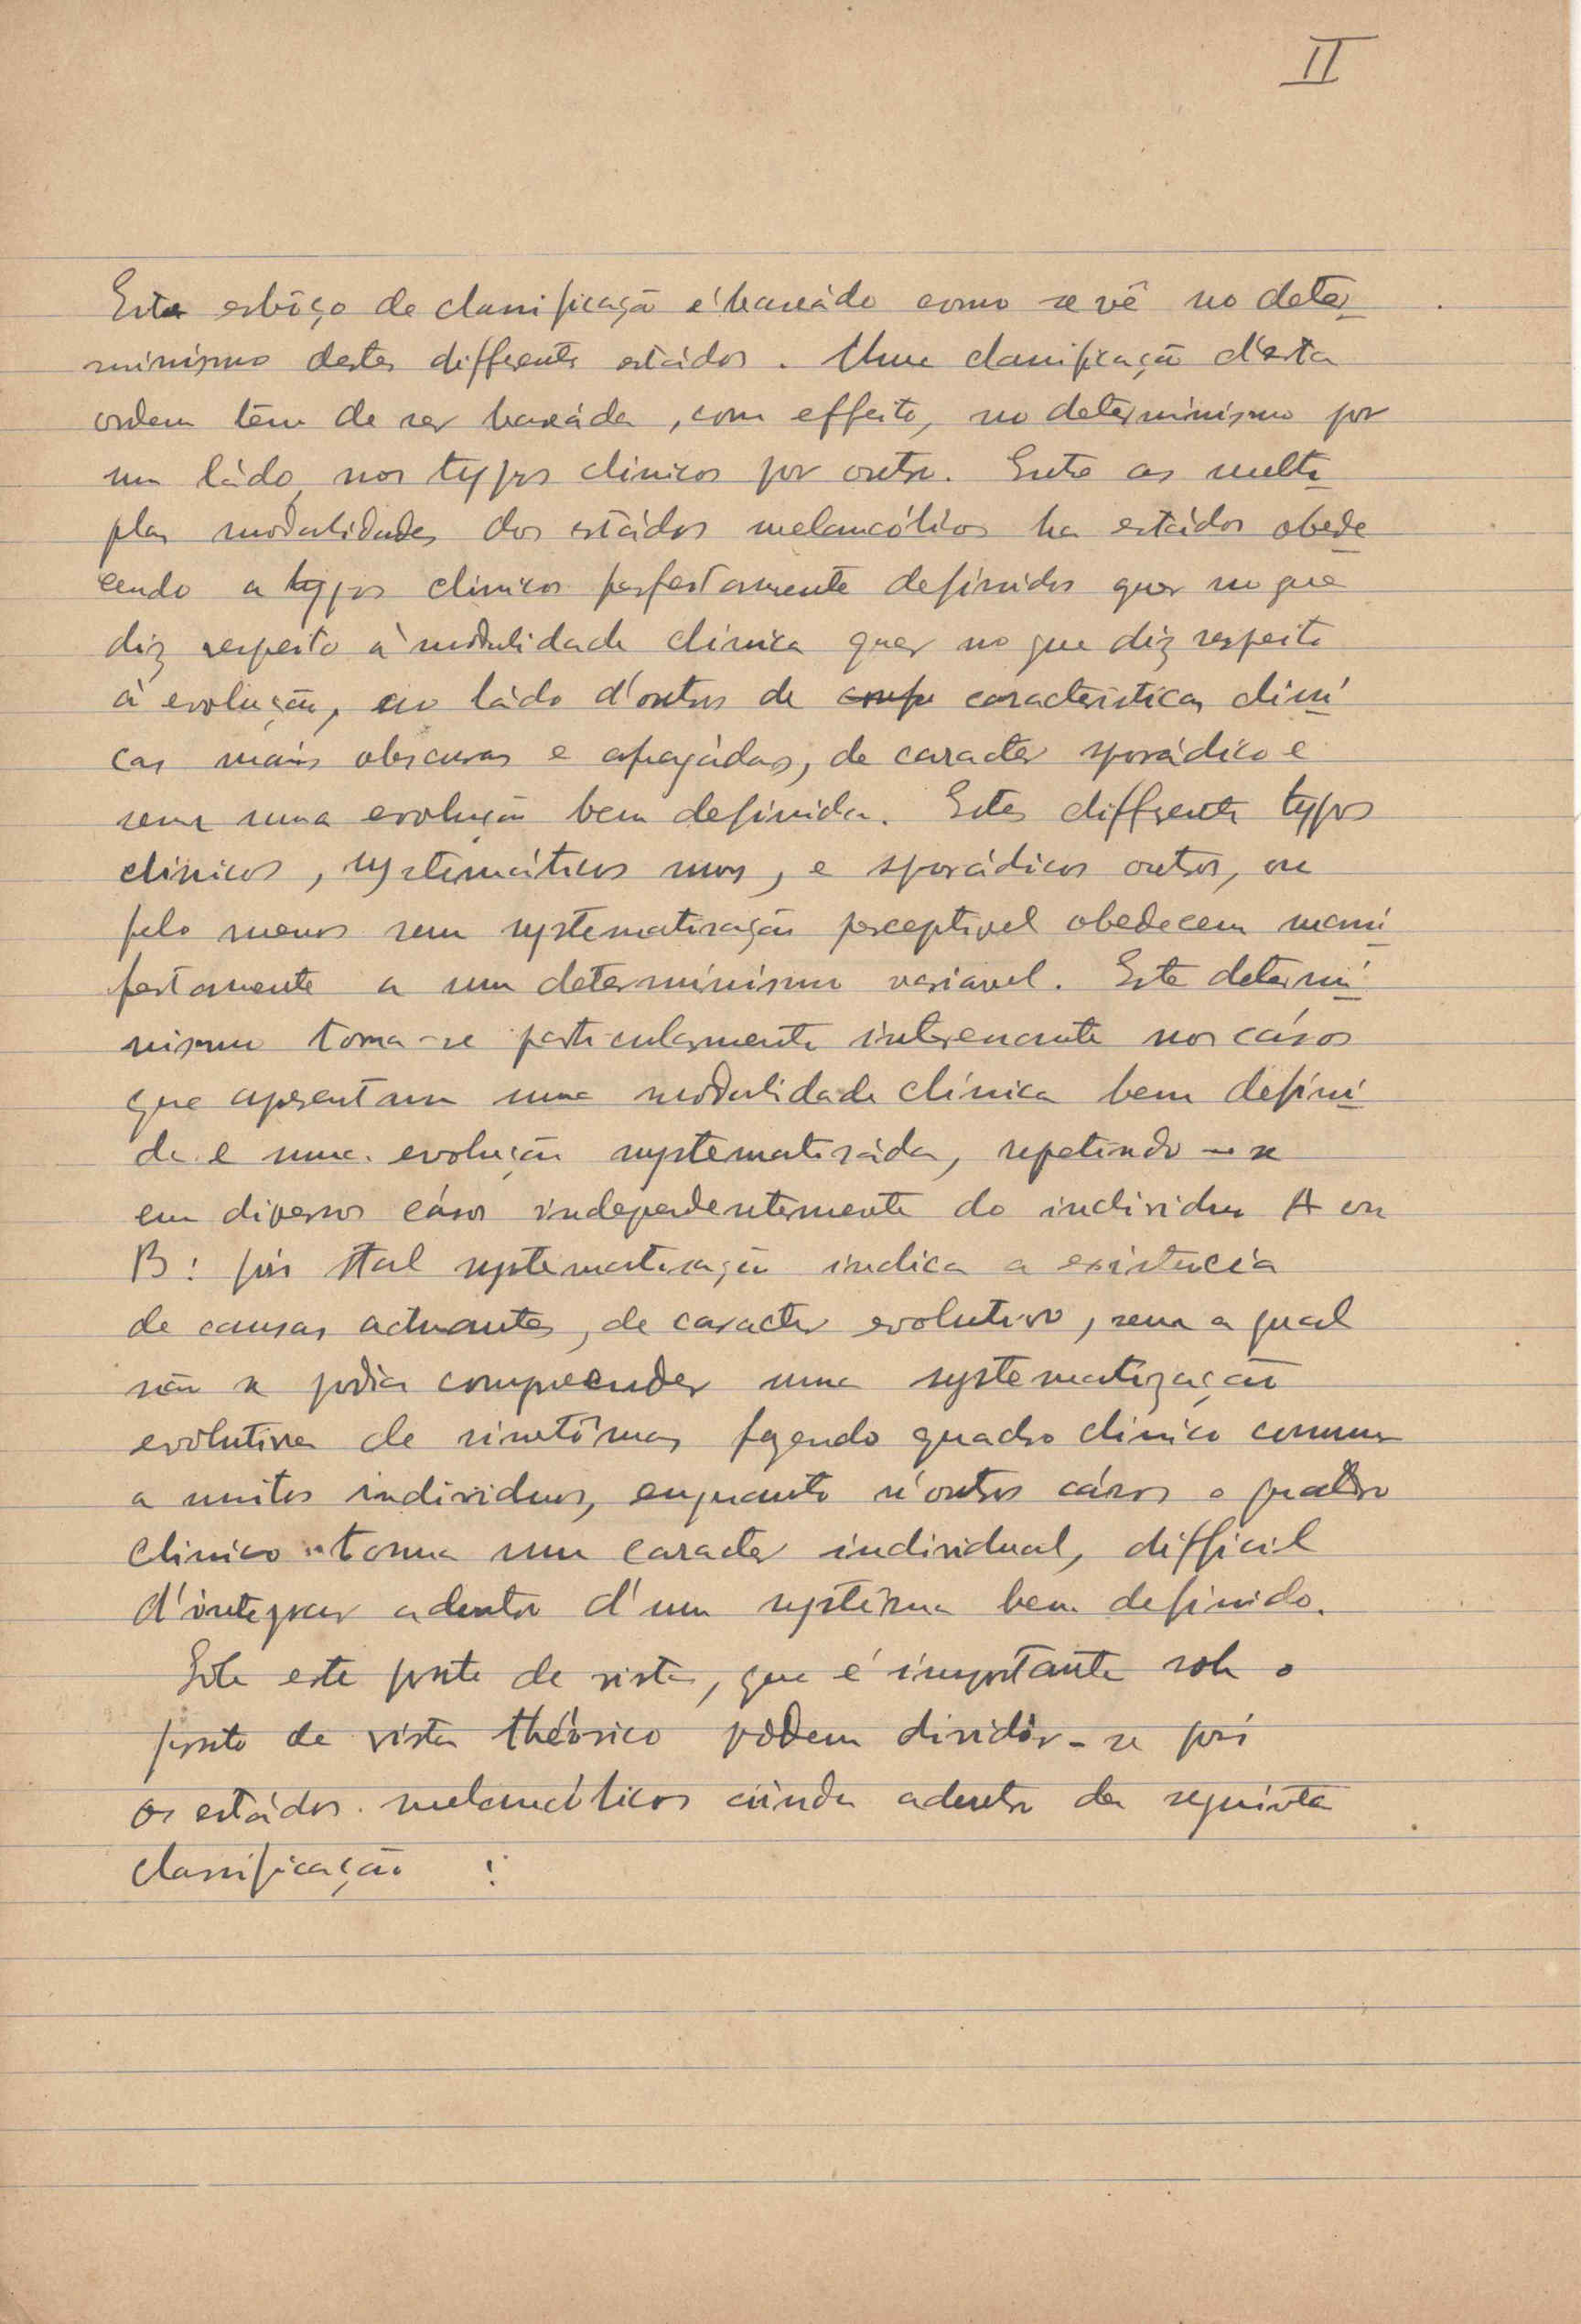 II
Este esbôço de classificação é baseádo como se vê no deter
minismo destes differentes estádos. Uma classificação d'esta
ordem têm de ser baseáda, com effeito, no determinismo por
um ládo, nos typos clinicos por outro. Entre as multi
plas modalidades dos estádos melancólicos ha estádos obede
cendo a typos clinicos perfeitamente definidos quer no que
diz respeito á modalidade clínica quer no que diz respeito
á evolução, ao ládo d'outros de caracteristicas clini
cas máis obscuras e apagádas, de caracter sporádico e
sem uma evolução bem definida. Estes differentes typos
clinicos, systemáticos uns, e sporádicos outros, ou
pelo menos sem systematisação perceptivel obedecem mani
festamente a um determinismo variavel. Este determi
nismo torna-se particularmente interessante nos cásos
que apresentam uma modalidade clínica bem defini
da e uma evolução systematisáda, repetindo-se
em diversos cásos independentemente do individuo A ou
B: pois tal systematisação indica a existencia
de causas actuantes, de caracter evolutivo, sem a qual
não se podia compreender uma systematização
evolutiva de sintômas fazendo quadro clinico commum
a muitos individuos, enquanto n'outros cásos o quadro
clinico toma um caracter individual, difficil
d'integrar adentro d'um systêma bem definido.
Sob este ponto de vista, que é importante sob o
ponto de vista theórico pódem dividir-se pois
os estádos melancólicos áinda adentro da seguinte
classificação :